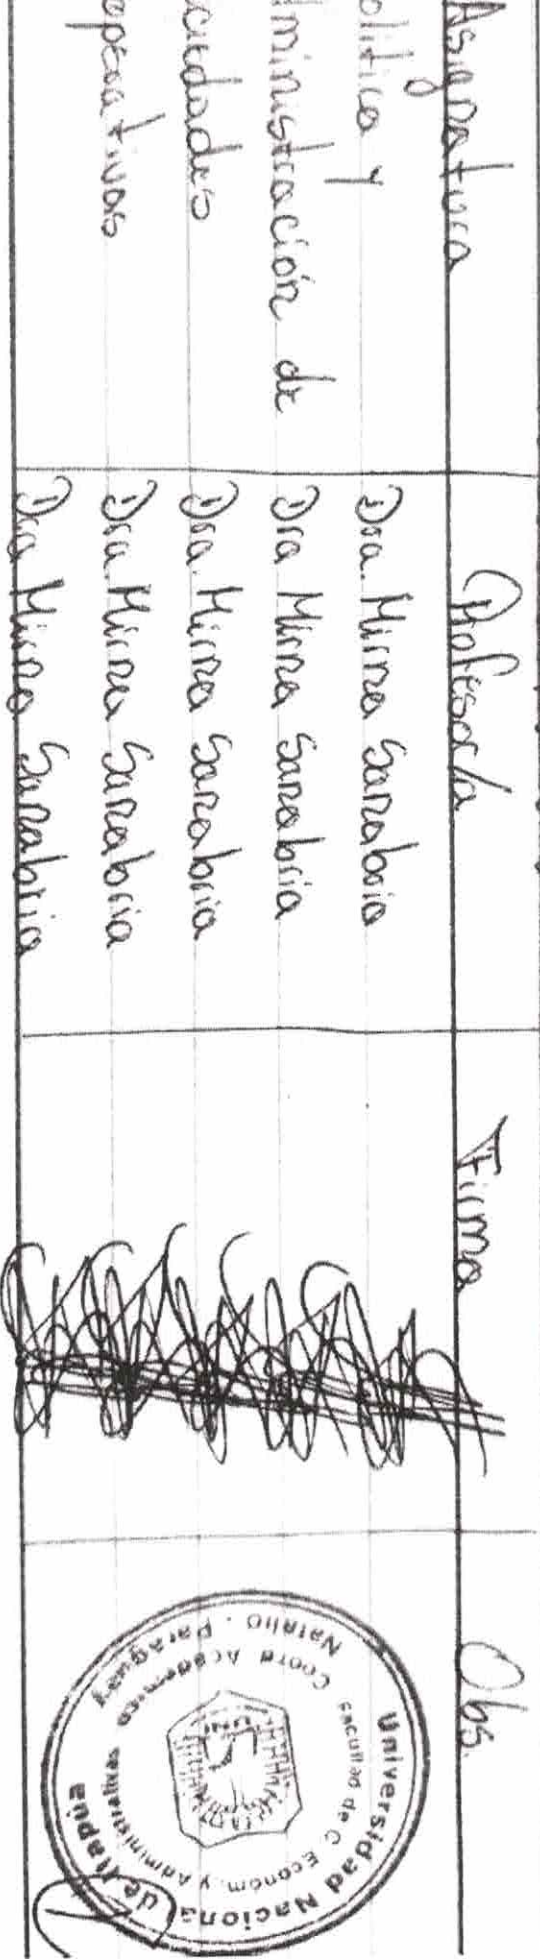 Asignatura Profesor/a Firma Obs.
olitica y Dra. Mirna Sanabria
ministración de Dra Mirna Sanabria
ciedades Dra. Mirna Sanabria
operativas Dra Mirna Sanabria
Dra Mirna Sanabria
Universidad Nacional de Itapúa
Facultad de C. Económ. y Administrativas
Coord Academica
Natalio - Paraguay